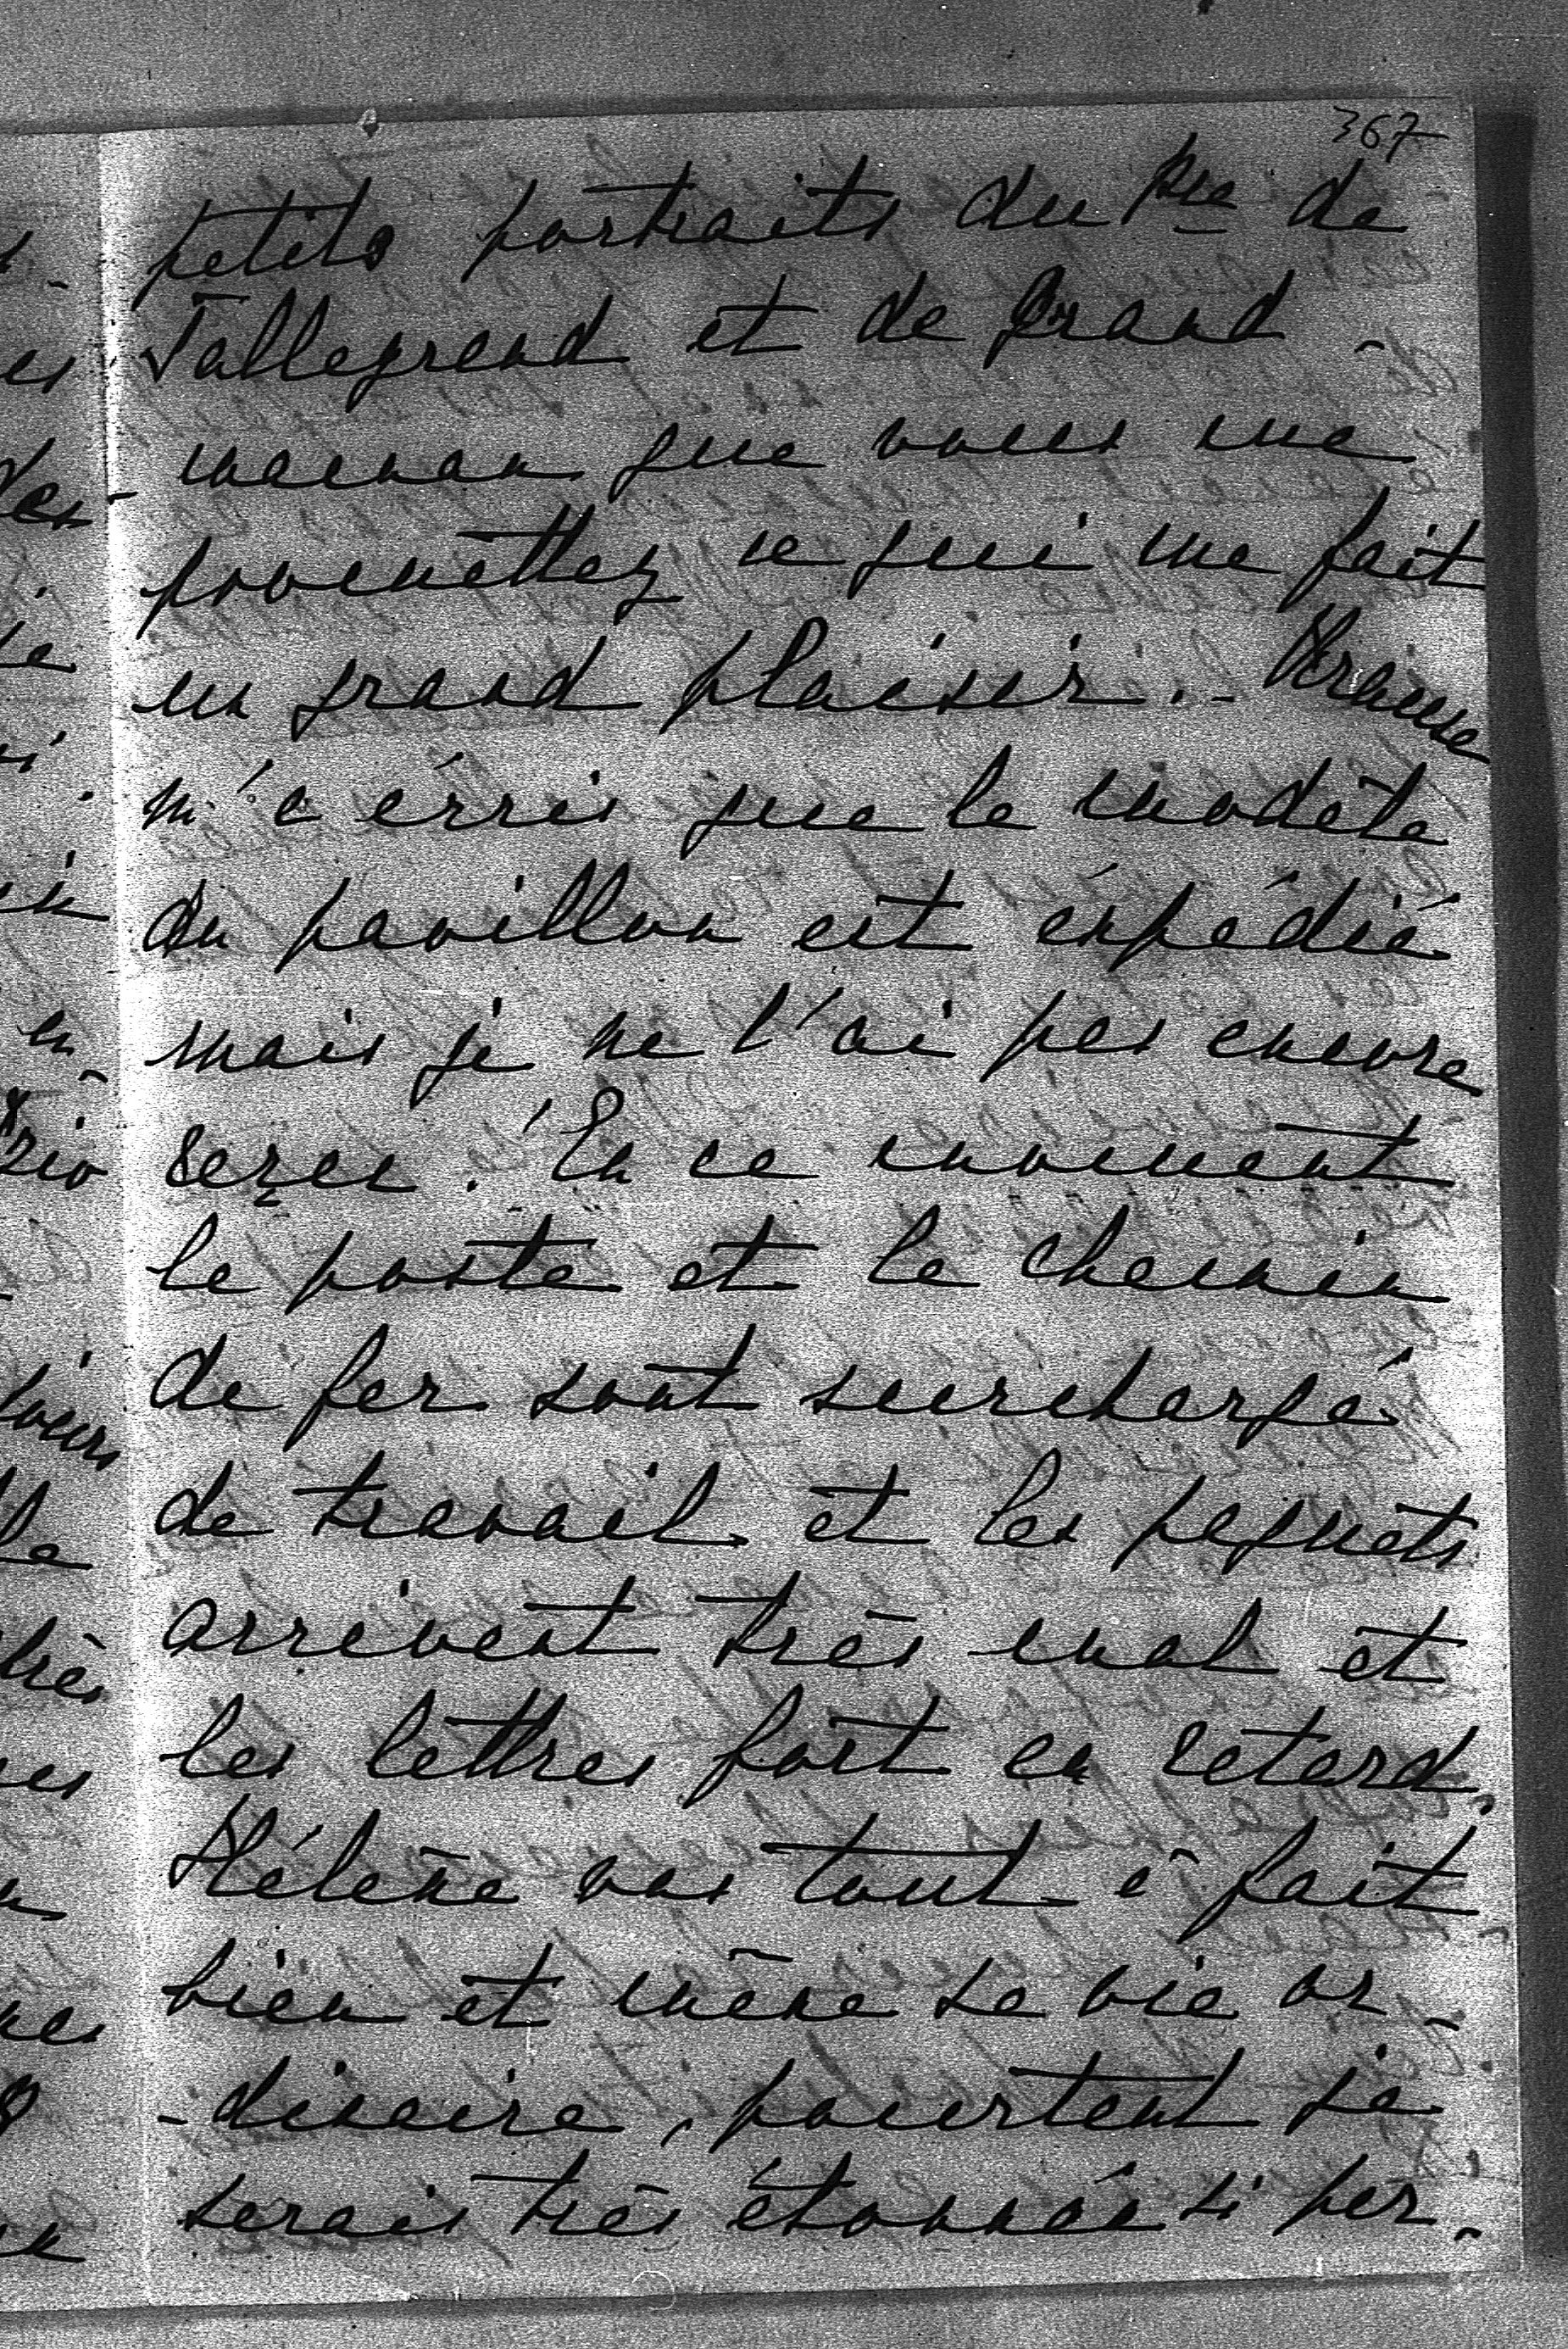 367
petits portraits du Pce de
Tallegrand et de Grand-
-maman que vous me
promettez ce qui me fait
un grand plaisir. - Krause
m'a écris que le modèle
du pavillon est éxpédié
mais je ne l'ai pas encore
reçu. En ce moment
le poste et le chemin
de fer sont surchargé
de travail et les paquets
arrivent très mal et
les lettres fort en retard.
Hélène vas tout à fait
bien et mène sa vie or-
-dinaire, pourtant je
serais très étonnée si per-